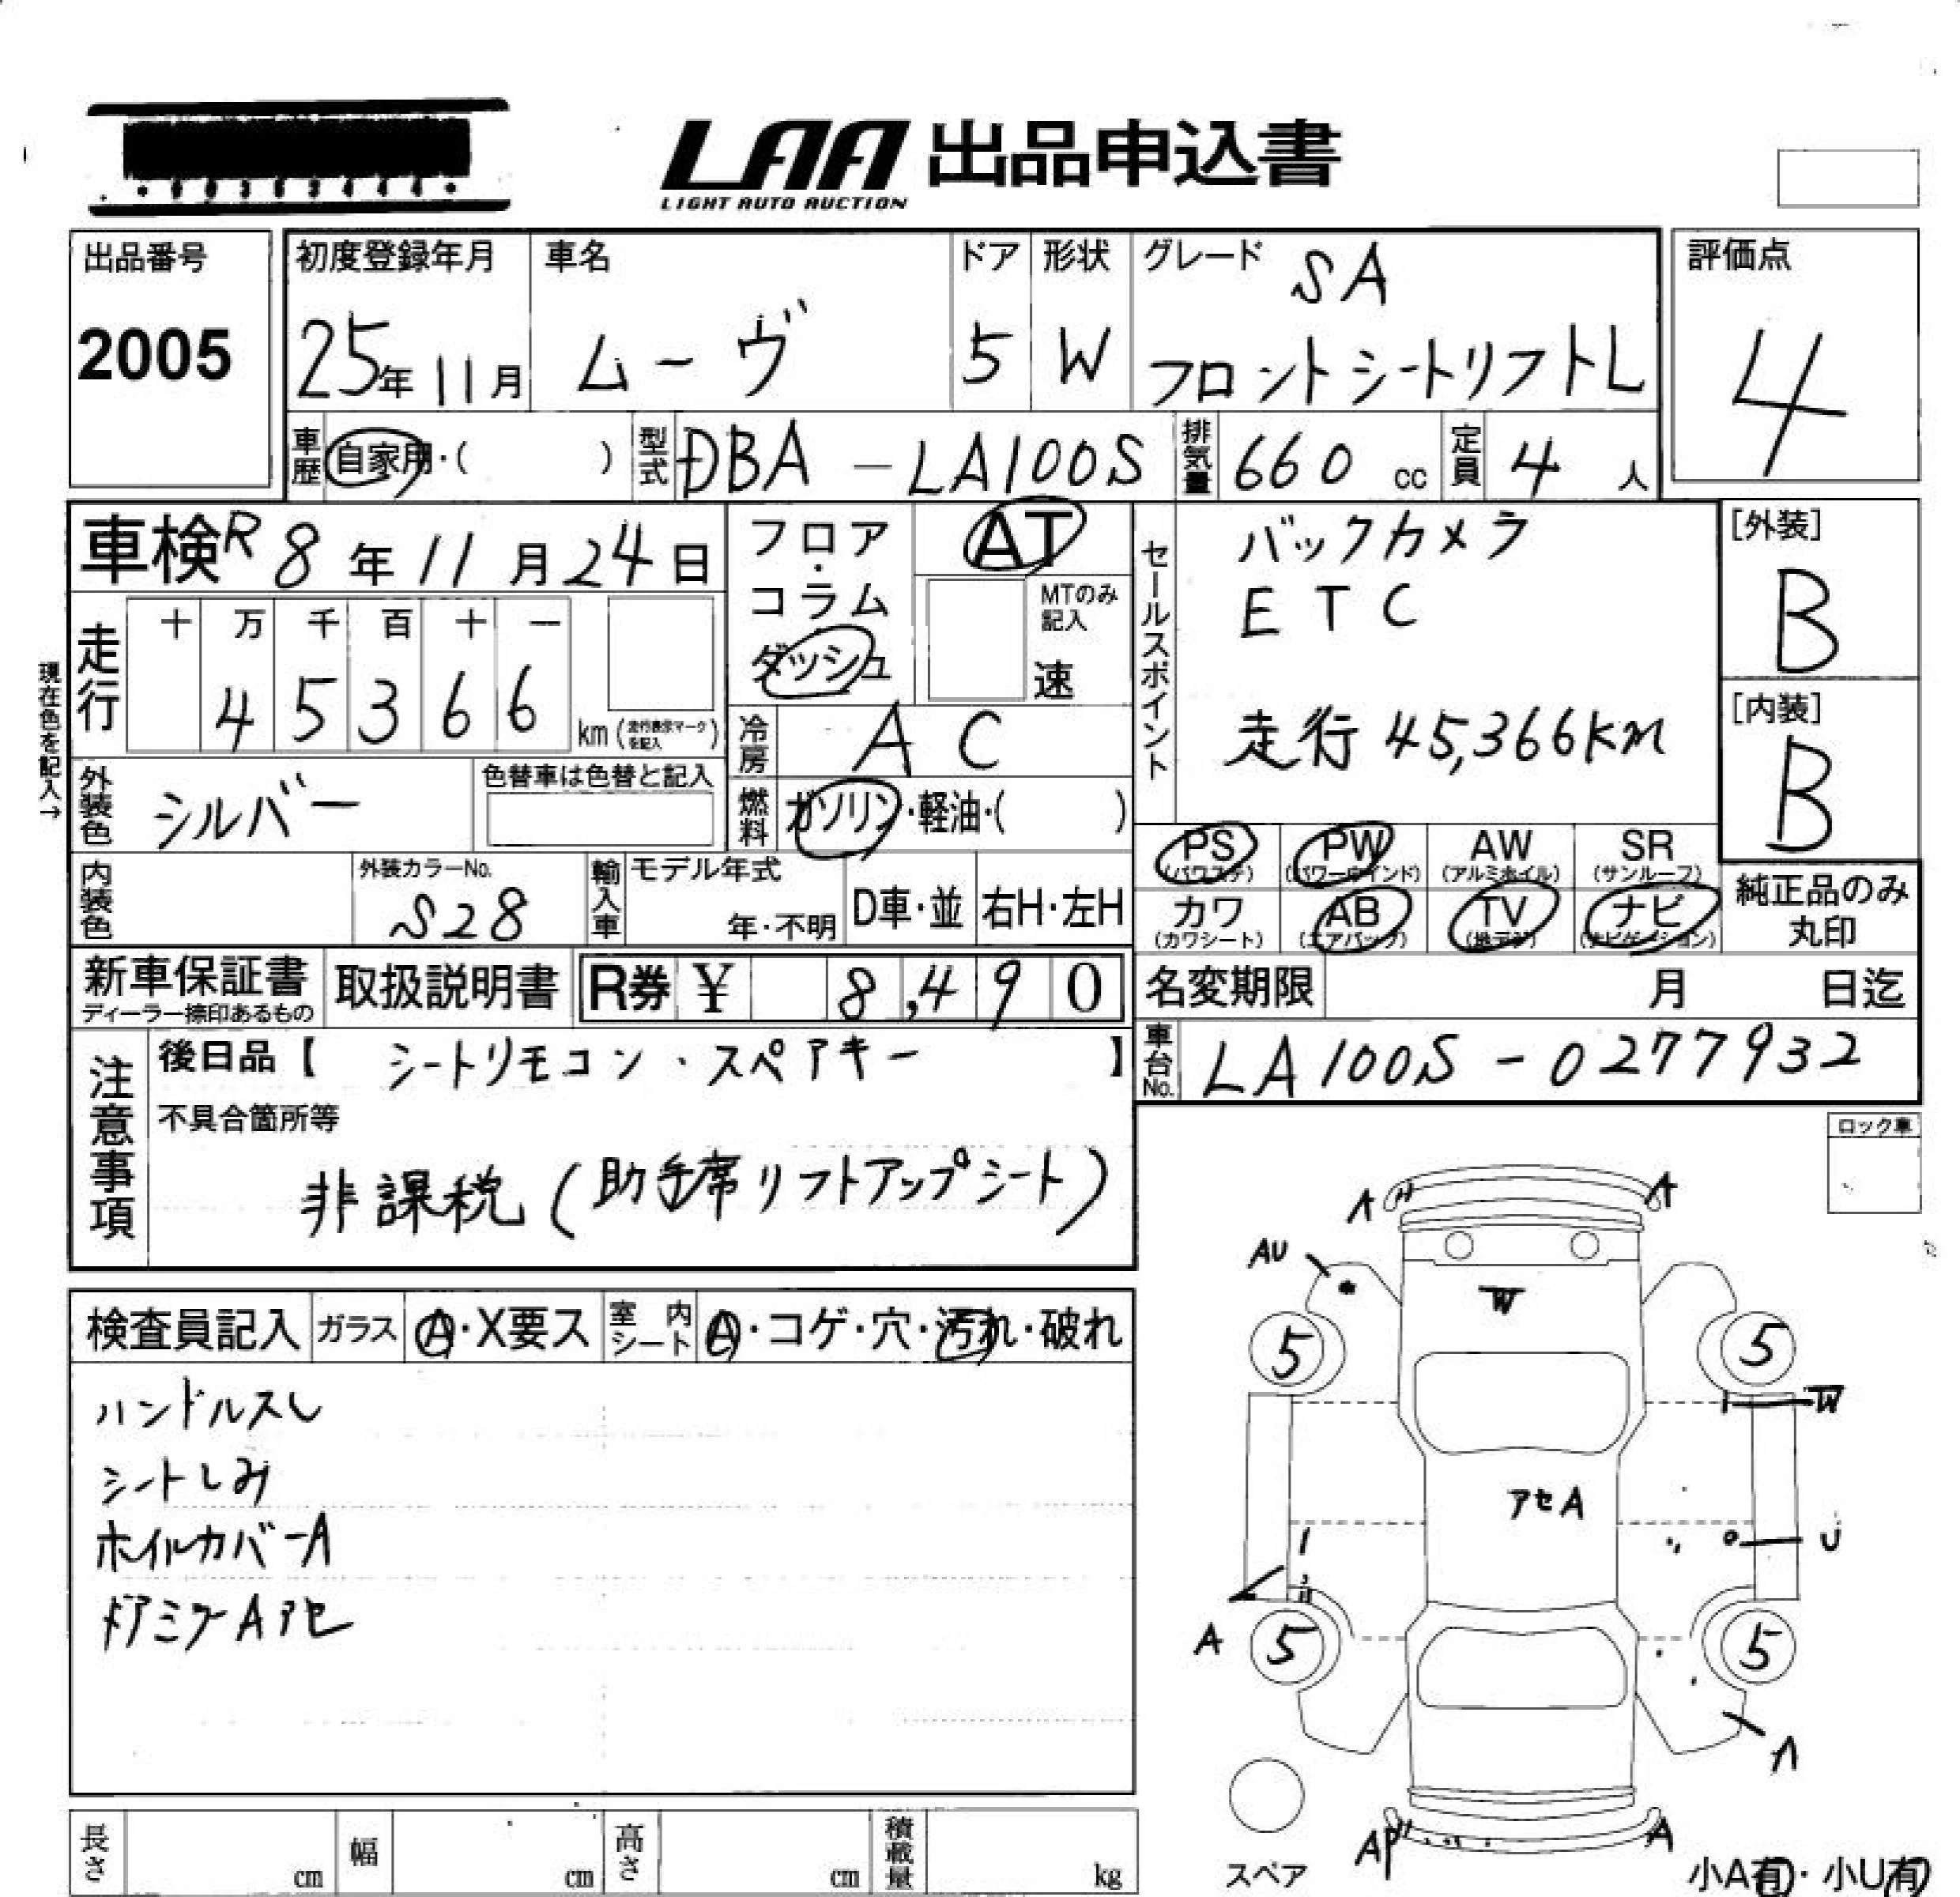 LAA 出品申込書
LIGHT AUTO AUCTION
出品番号
2005
初度登録年月
25年11月
車名
ムーヴ
ドア
5
形状
W
グレード
SA
フロントシートリフトL
評価点
4
車歴 自家用・( )
型式 DBA-LA100S
排気量 660 cc
定員 4 人
車検 R8年11月24日
フロア・コラム
ダッシュ
AT
MTのみ記入
速
走行
十 万 千 百 十 一
4 5 3 6 6
km (走行表示マークを記入)
現在色を記入→
冷房 AC
燃料 ガソリン・軽油・( )
外装色 シルバー
色替車は色替と記入
内装色
外装カラーNo.
S28
輸入車
モデル年式
年・不明
D車・並
右H・左H
セールスポイント
バックカメラ
ETC
走行 45,366KM
[外装]
B
[内装]
B
PS (パワステ)
PW (パワーウインド)
AW (アルミホイル)
SR (サンルーフ)
カワ (カワシート)
AB (エアバック)
TV (地デジ)
ナビ (ナビゲーション)
純正品のみ
丸印
新車保証書
ディーラー捺印あるもの
取扱説明書
R券 ¥ 8,490
名変期限 月 日迄
車台No. LA100S-0277932
注意事項
後日品【 シートリモコン・スペアキー 】
不具合箇所等
非課税(助手席リフトアップシート)
ロック車
検査員記入
ガラス A・X要ス
室内シート A・コゲ・穴・汚れ・破れ
ハンドルスレ
シートしみ
ホイルカバーA
ドアミラーAアセ
A
A
AU
W
5
5
W
アセA
U
A
5
5
A
AP
A
スペア
小A有・小U有
長さ cm
幅 cm
高さ cm
積載量 kg